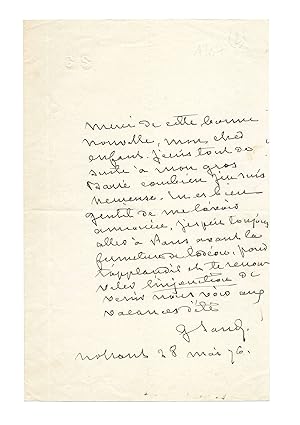 Merci de cette bonne
nouvelle, mon cher
enfant. J'écris tout de
suite à mon gros
combien je suis
heureuse. Tu es bien
gentil de me l'avoir
annoncée, j'espère toujours
aller à Paris avant la
fermeture de l'odéon, pour
t'applaudir et te renou
veler l'injonction de
venir nous voir aux
vacances d'été
G Sand.
Nohant 28 mai 76.